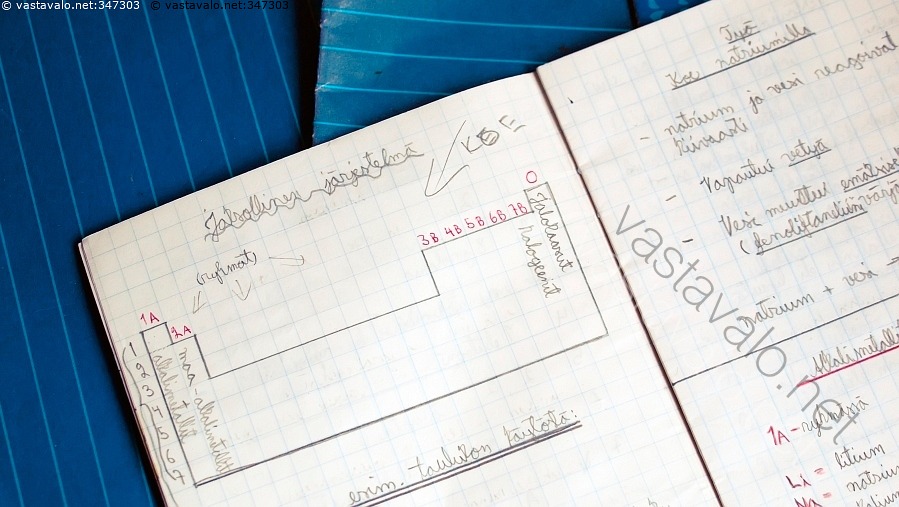 © vastavalo.net:347303 © vastavalo.net:347303
Jaksollinen järjestelmä
KOE
(ryhmät)
1A
2A
3B 4B 5B 6B 7B
0
Jalokaasut
halogeenit
1
2
3
4
5
6
7
alkalimetallit
maa-alkalimetallit
esim. taulukon käytöstä:
Työ
Koe natriumilla
- natrium ja vesi reagoivat
kiivaasti
- Vapautui vetyä
- Vesi muuttui
natrium + vesi
1A-ryhmässä
Li = litium
Na = natrium
kalium
vastavalo.net